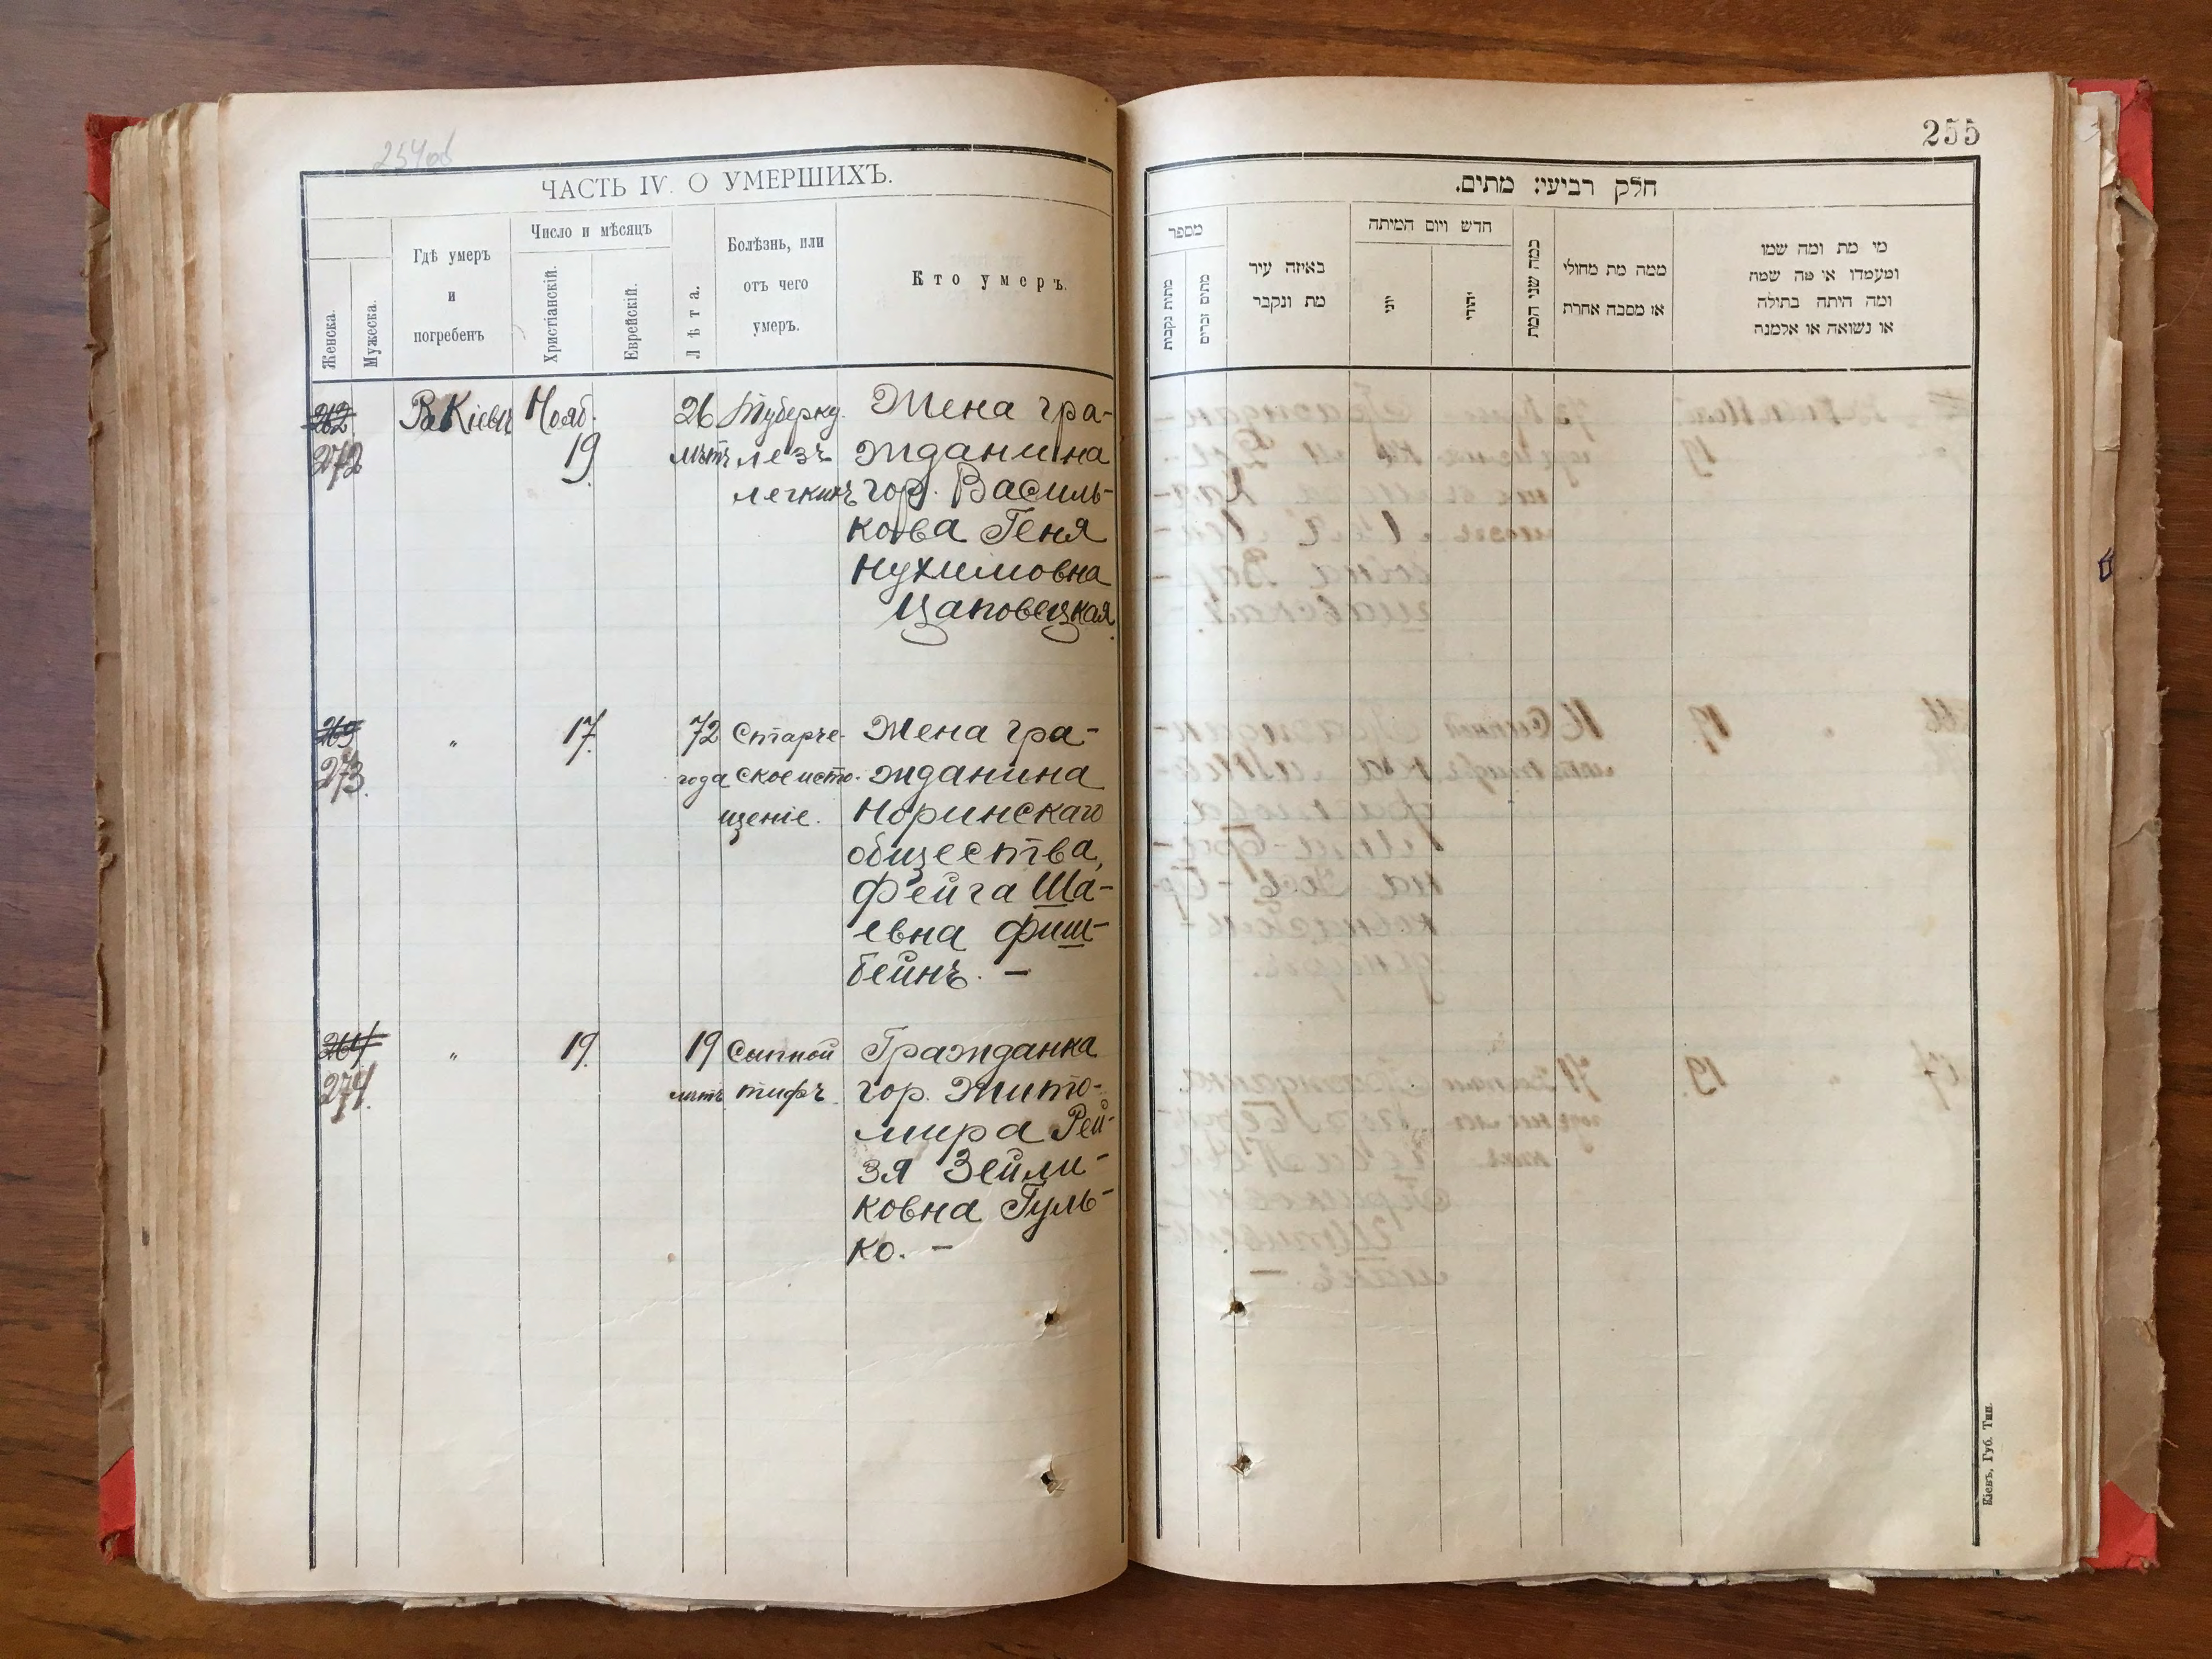 254об
ЧАСТЬ IV. О УМЕРШИХЪ.
Женска.
Мужеска.
Гдѣ умеръ
и
погребенъ
Число и мѣсяцъ
Христіанскій.
Еврейскій.
Лѣта.
Болѣзнь, или
отъ чего
умеръ.
Кто умеръ.
262
272
Въ Кіевѣ
Нояб.
19.
26
лѣтъ
Туберку-
лезъ
легкихъ
Жена гра-
жданина
гор. Василь-
кова Геня
Нухимовна
Цаповецкая.
263
273.
"
17.
72
года
Старче-
ское исто-
щеніе.
Жена гра-
жданина
Норинскаго
общества,
Фейга Ша-
евна Фиш-
бейнъ. —
264
274.
"
19.
19
лѣтъ
Сыпной
тифъ.
Гражданка
гор. Жито-
мира Рей-
зя Зейли-
ковна Гуль-
ко. —
255
חלק רביעי: מתים.
מספר
מתות נקבות
מתים זכרים
באיזה עיר
מת ונקבר
חדש ויום המיתה
יוני
יהודי
כמה שני המת
ממה מת מחולי
או מסבה אחרת
מי מת ומה שמו
ומעמדו או מה שמה
ומה היתה בתולה
או נשואה או אלמנה
Кіевъ, Губ. Тип.